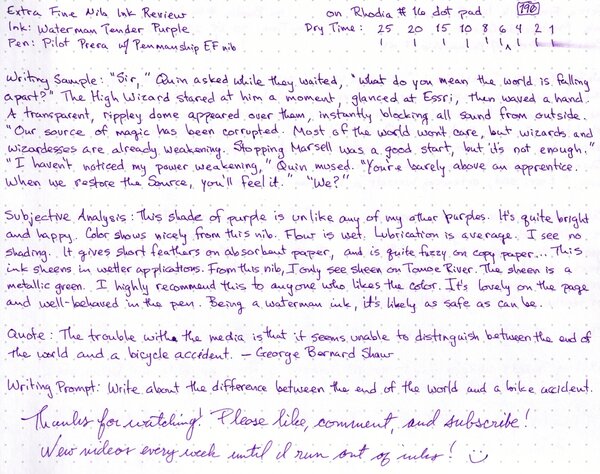 Extra Fine Nib Ink Review on Rhodia #16 dot pad 196
Ink: Waterman Tender Purple Dry Time: 25 20 15 10 8 6 4 2 1
Pen: Pilot Prera w/ Penmanship EF nib
Writing Sample: "Sir," Quin asked while they waited, "what do you mean the world is falling
apart?" The High Wizard stared at him a moment, glanced at Essri, then waved a hand.
A transparent, rippley dome appeared over them, instantly blocking all sound from outside.
"Our source of magic has been corrupted. Most of the world won't care, but wizards and
wizardesses are already weakening. Stopping Marsell was a good start, but it's not enough."
"I haven't noticed my power weakening," Quin mused. "You're barely above an apprentice.
When we restore the Source, you'll feel it." "We?"
Subjective Analysis: This shade of purple is unlike any of my other purples. It's quite bright
and happy. Color shows nicely from this nib. Flow is wet. Lubrication is average. I see no
shading. It gives short feathers on absorbent paper, and is quite fuzzy on copy paper... This
ink sheens in wetter applications. From this nib, I only see sheen on Tomoe River. The sheen is a
metallic green. I highly recommend this to anyone who likes the color. It's lovely on the page
and well-behaved in the pen. Being a waterman ink, it's likely as safe as can be.
Quote: The trouble with the media is that it seems unable to distinguish between the end of
the world and a bicycle accident. — George Bernard Shaw
Writing Prompt: Write about the difference between the end of the world and a bike accident.
Thanks for watching! Please like, comment, and subscribe!
New videos every week until I run out of inks!